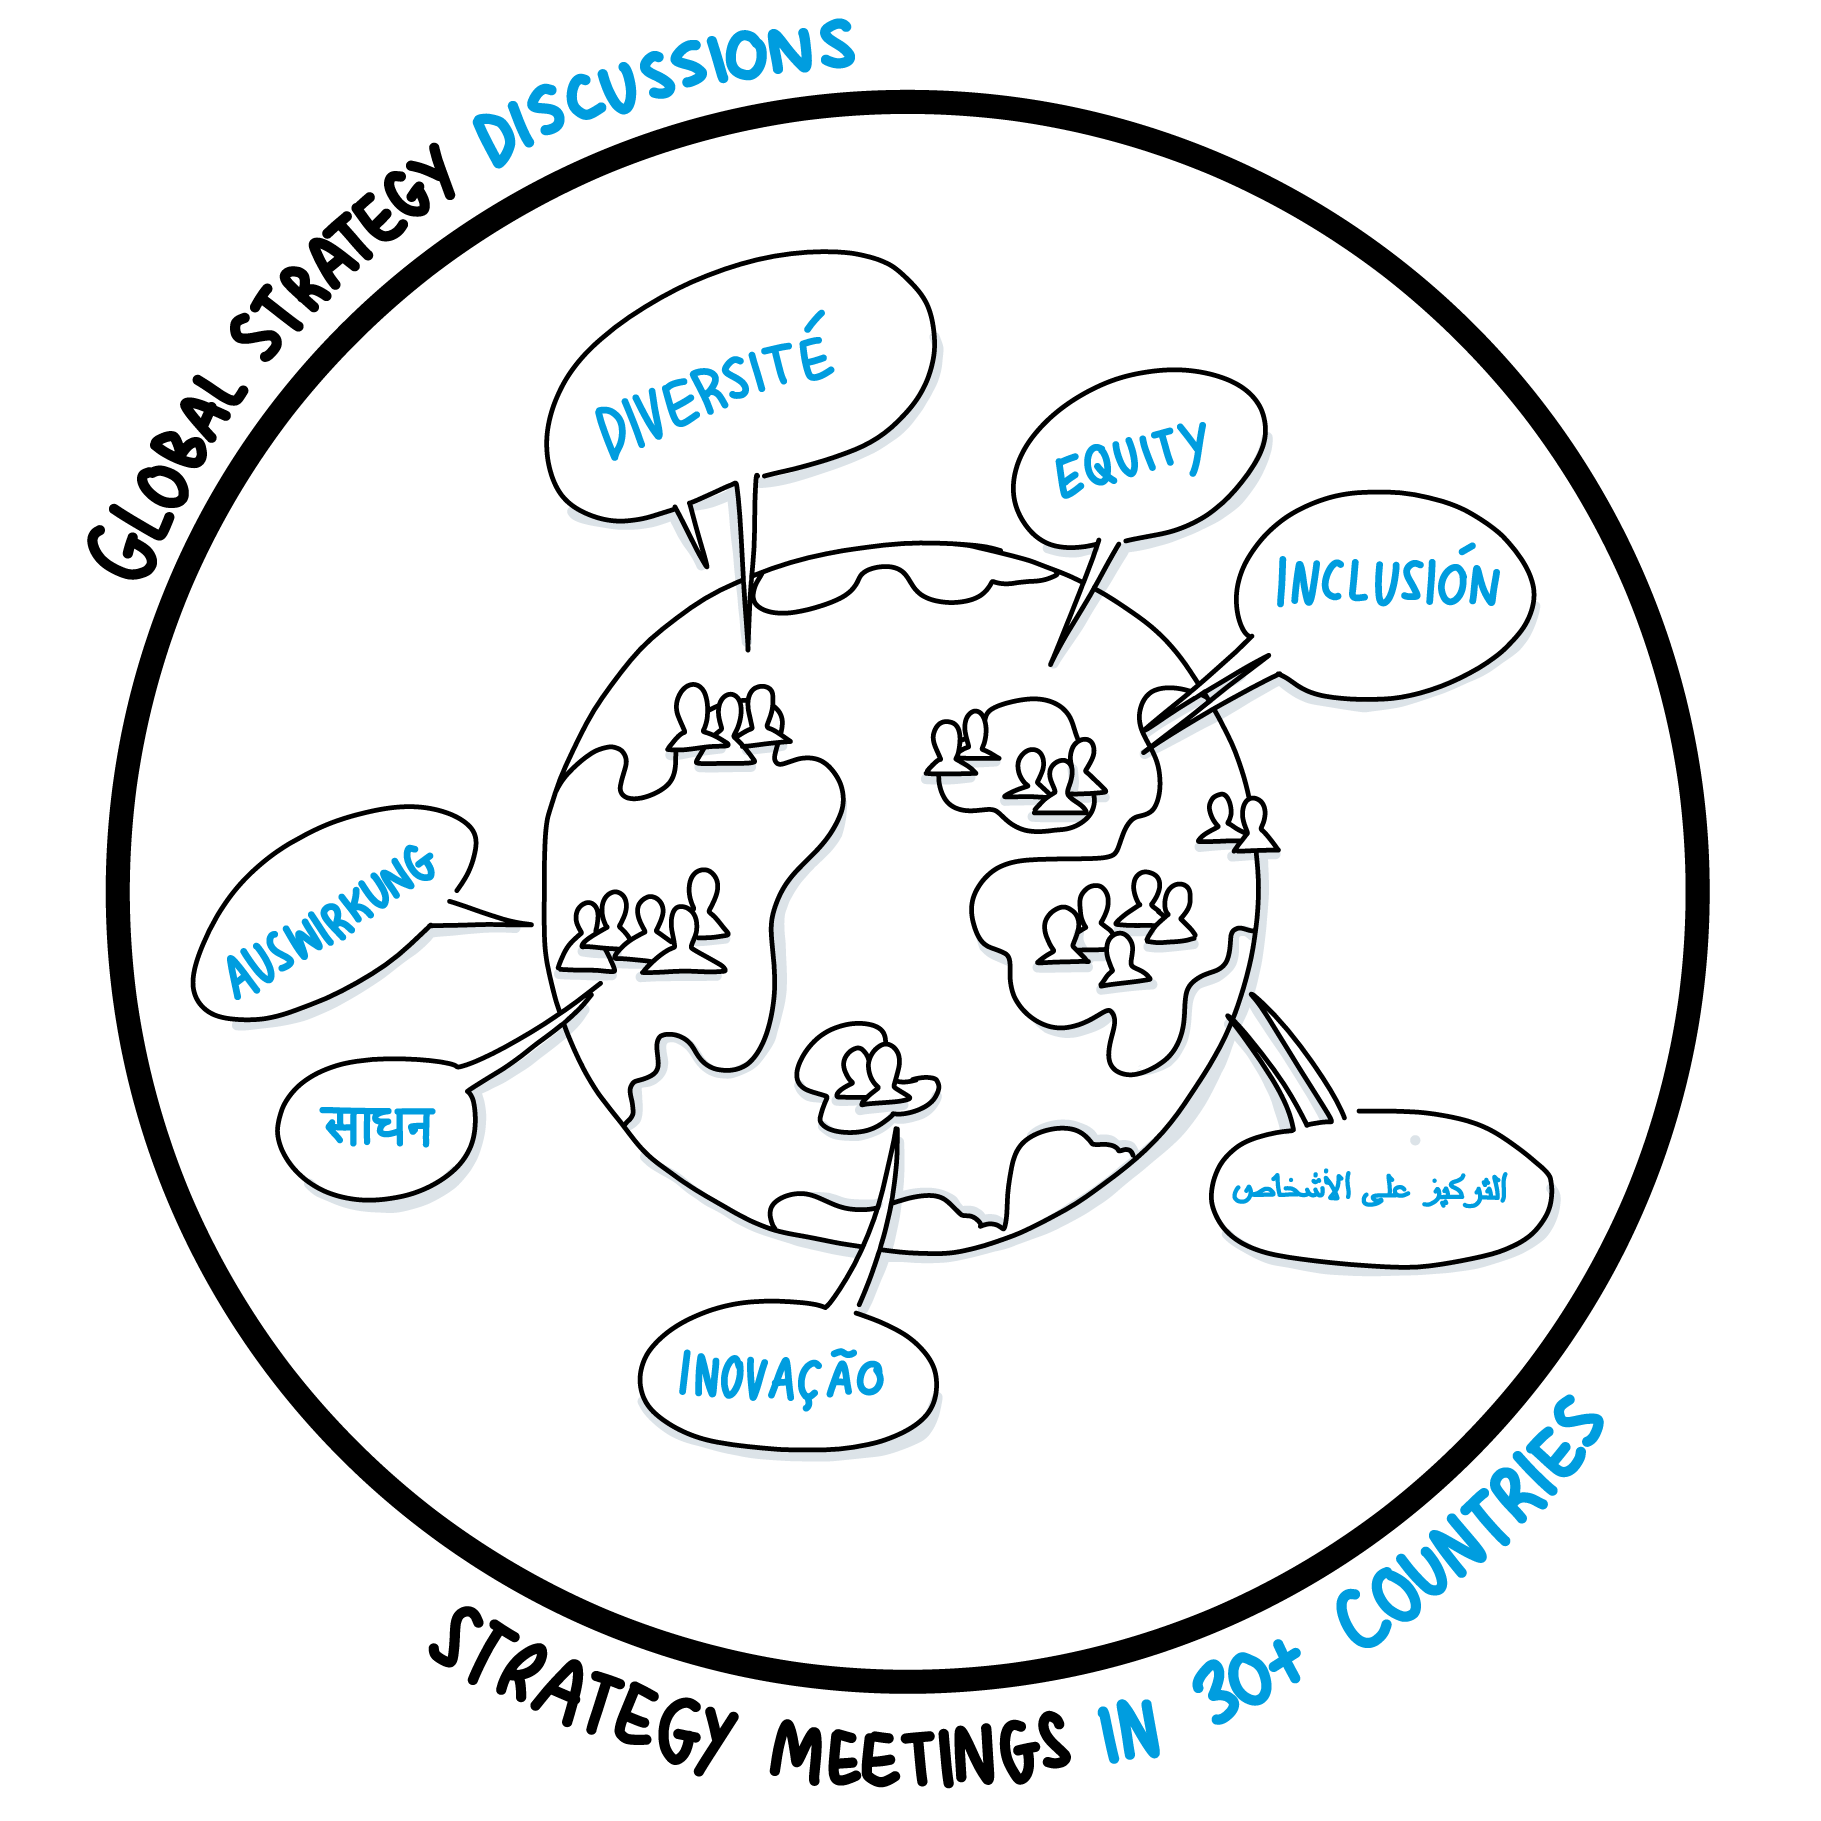 GLOBAL STRATEGY DISCUSSIONS
DIVERSITÉ
EQUITY
INCLUSIÓN
AUSWIRKUNG
साधन
التركيز على الأشخاص
INOVAÇÃO
STRATEGY MEETINGS IN 30+ COUNTRIES